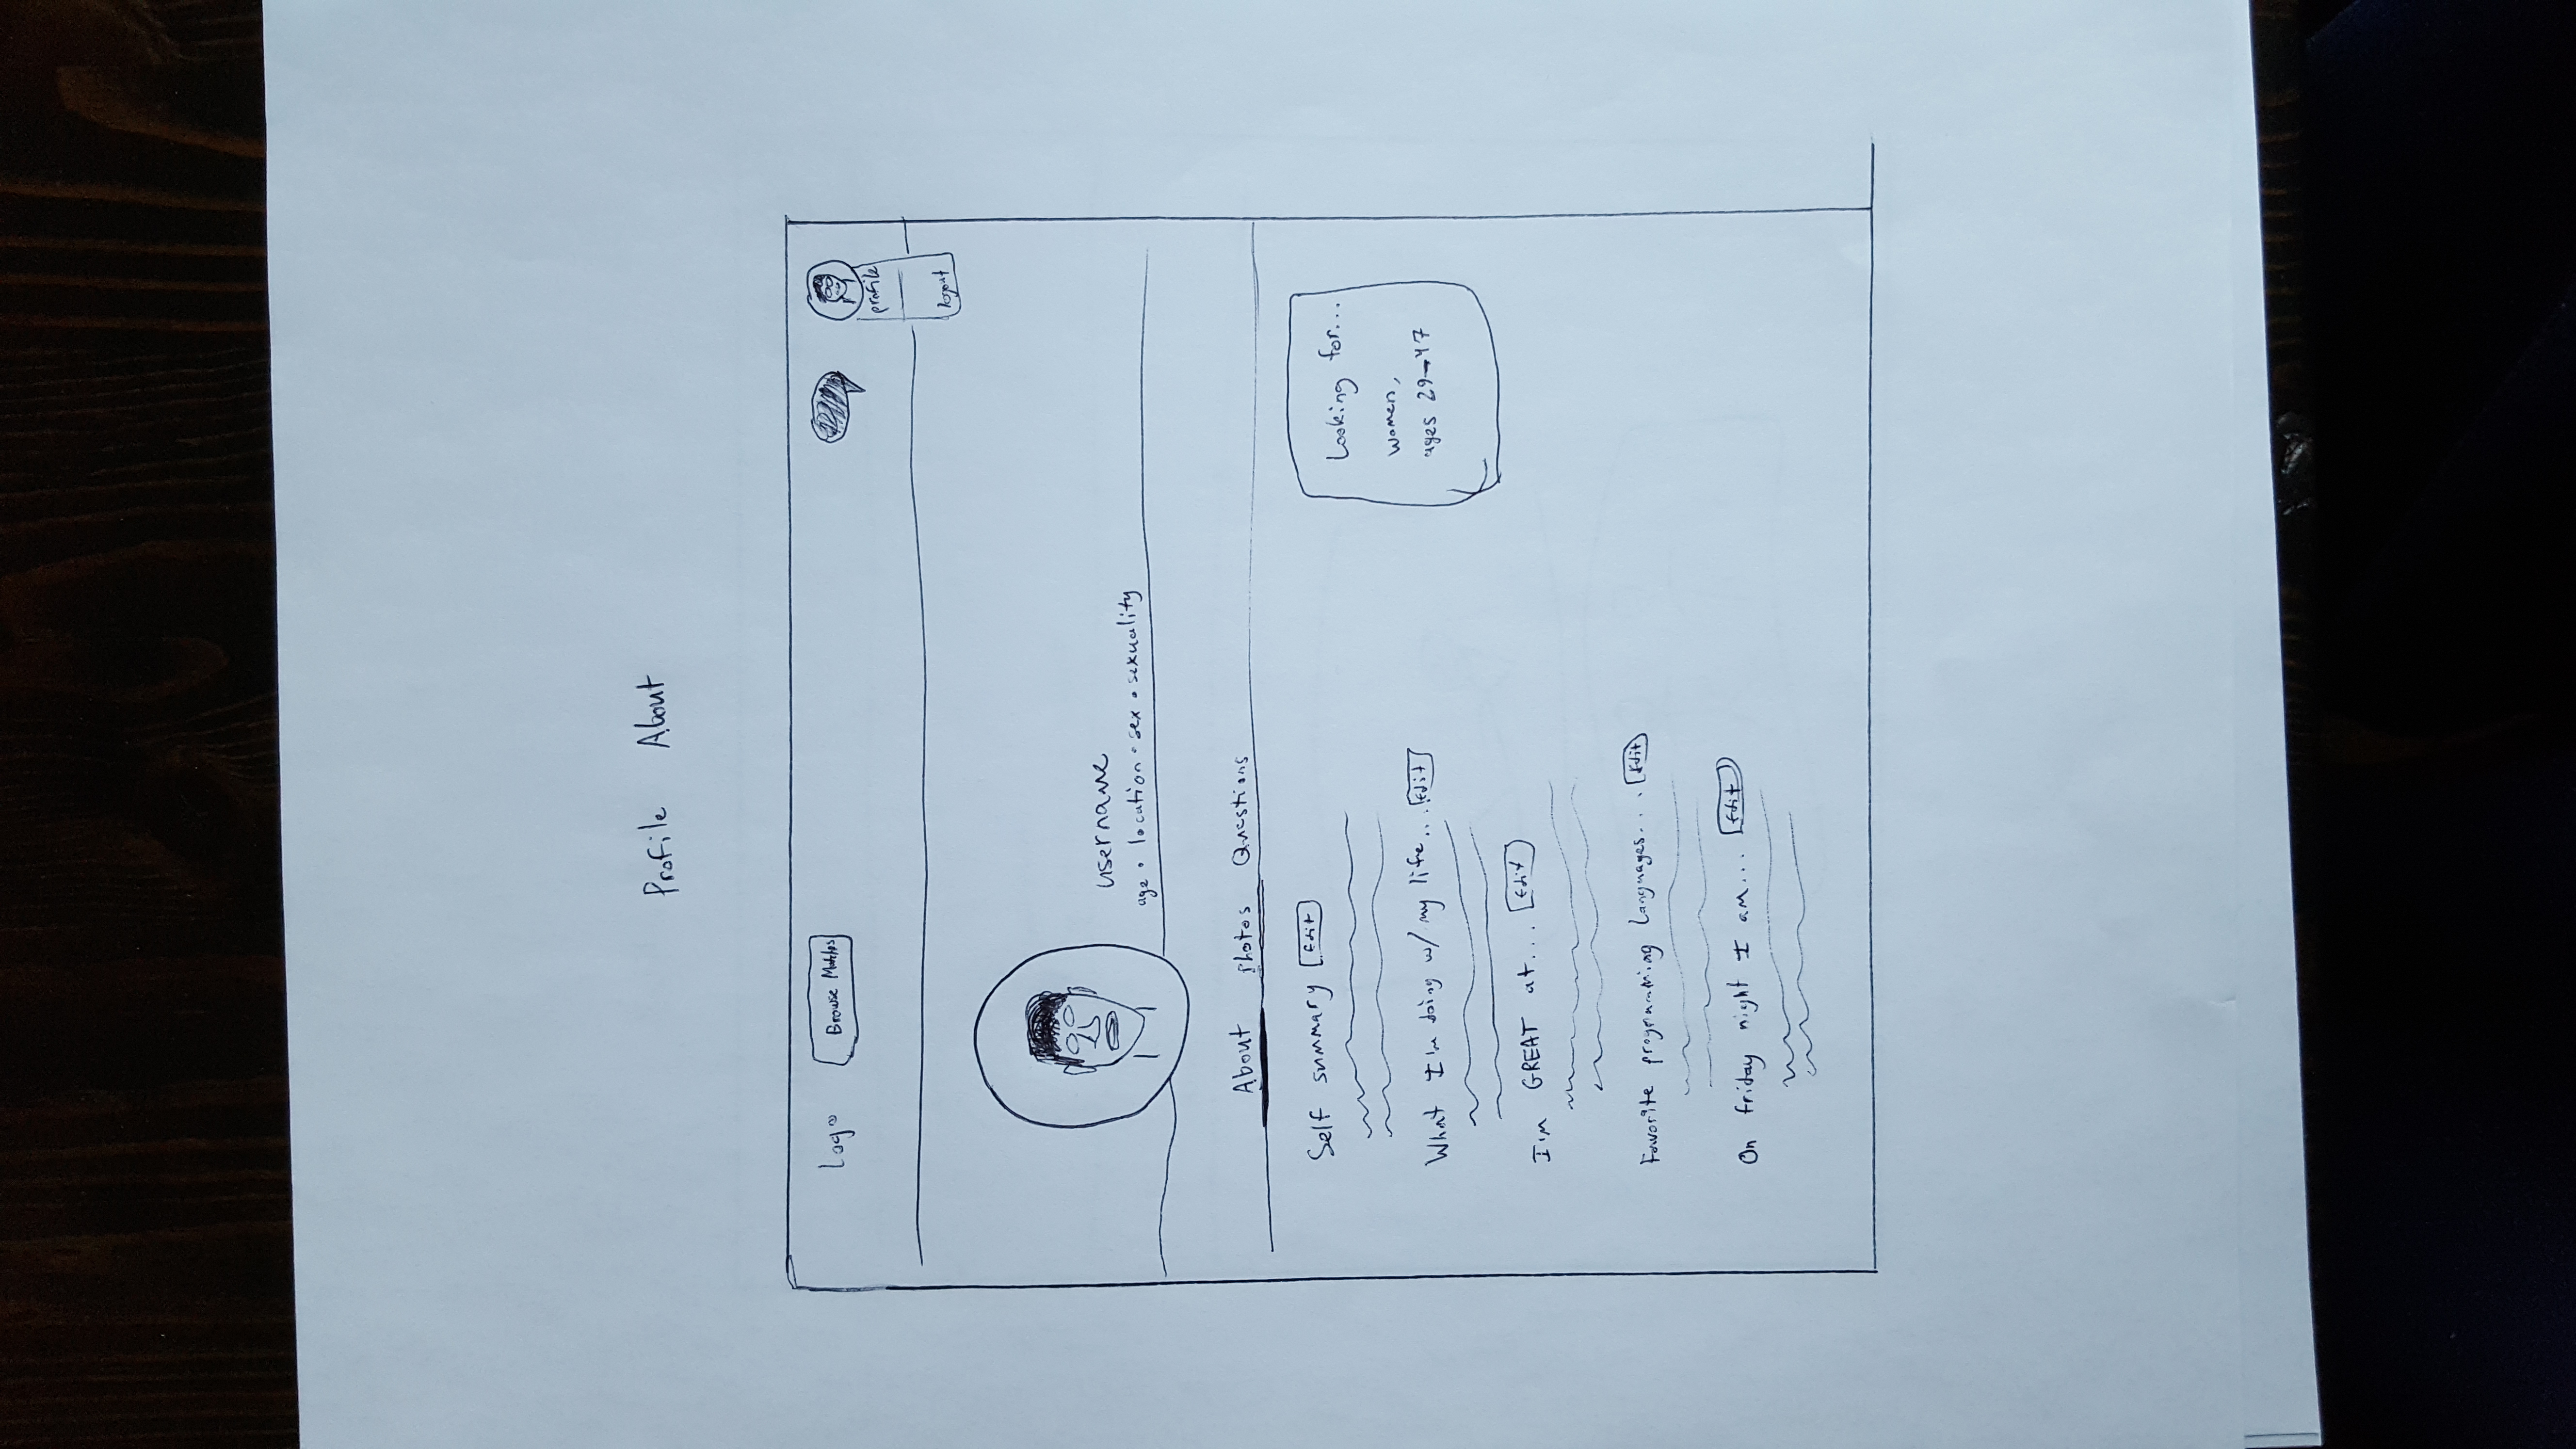 Profile About
Logo Browse Matches
profile
logout
username
age • location • sex • sexuality
About Photos Questions
Self summary Edit
What I'm doing w/ my life... Edit
I'm GREAT at... Edit
Favorite programming languages.... Edit
On friday night I am... Edit
Looking for...
women,
ages 29-47